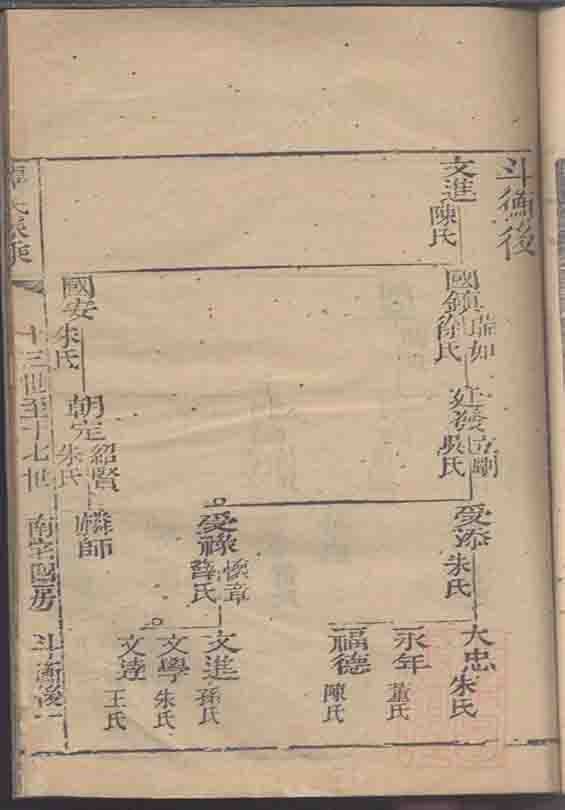 斗衡後
文進 陳氏
國鎮 瑞如 徐氏
吳氏
受添 朱氏
大忠 朱氏
永年 董氏
福德 陳氏
受祿 懷章 薛氏
文進 孫氏
文學 朱氏
文達 王氏
國安 朱氏
朝定 紹賢 朱氏
麟師
十三世至十七世
南宅 房 斗衡後 一